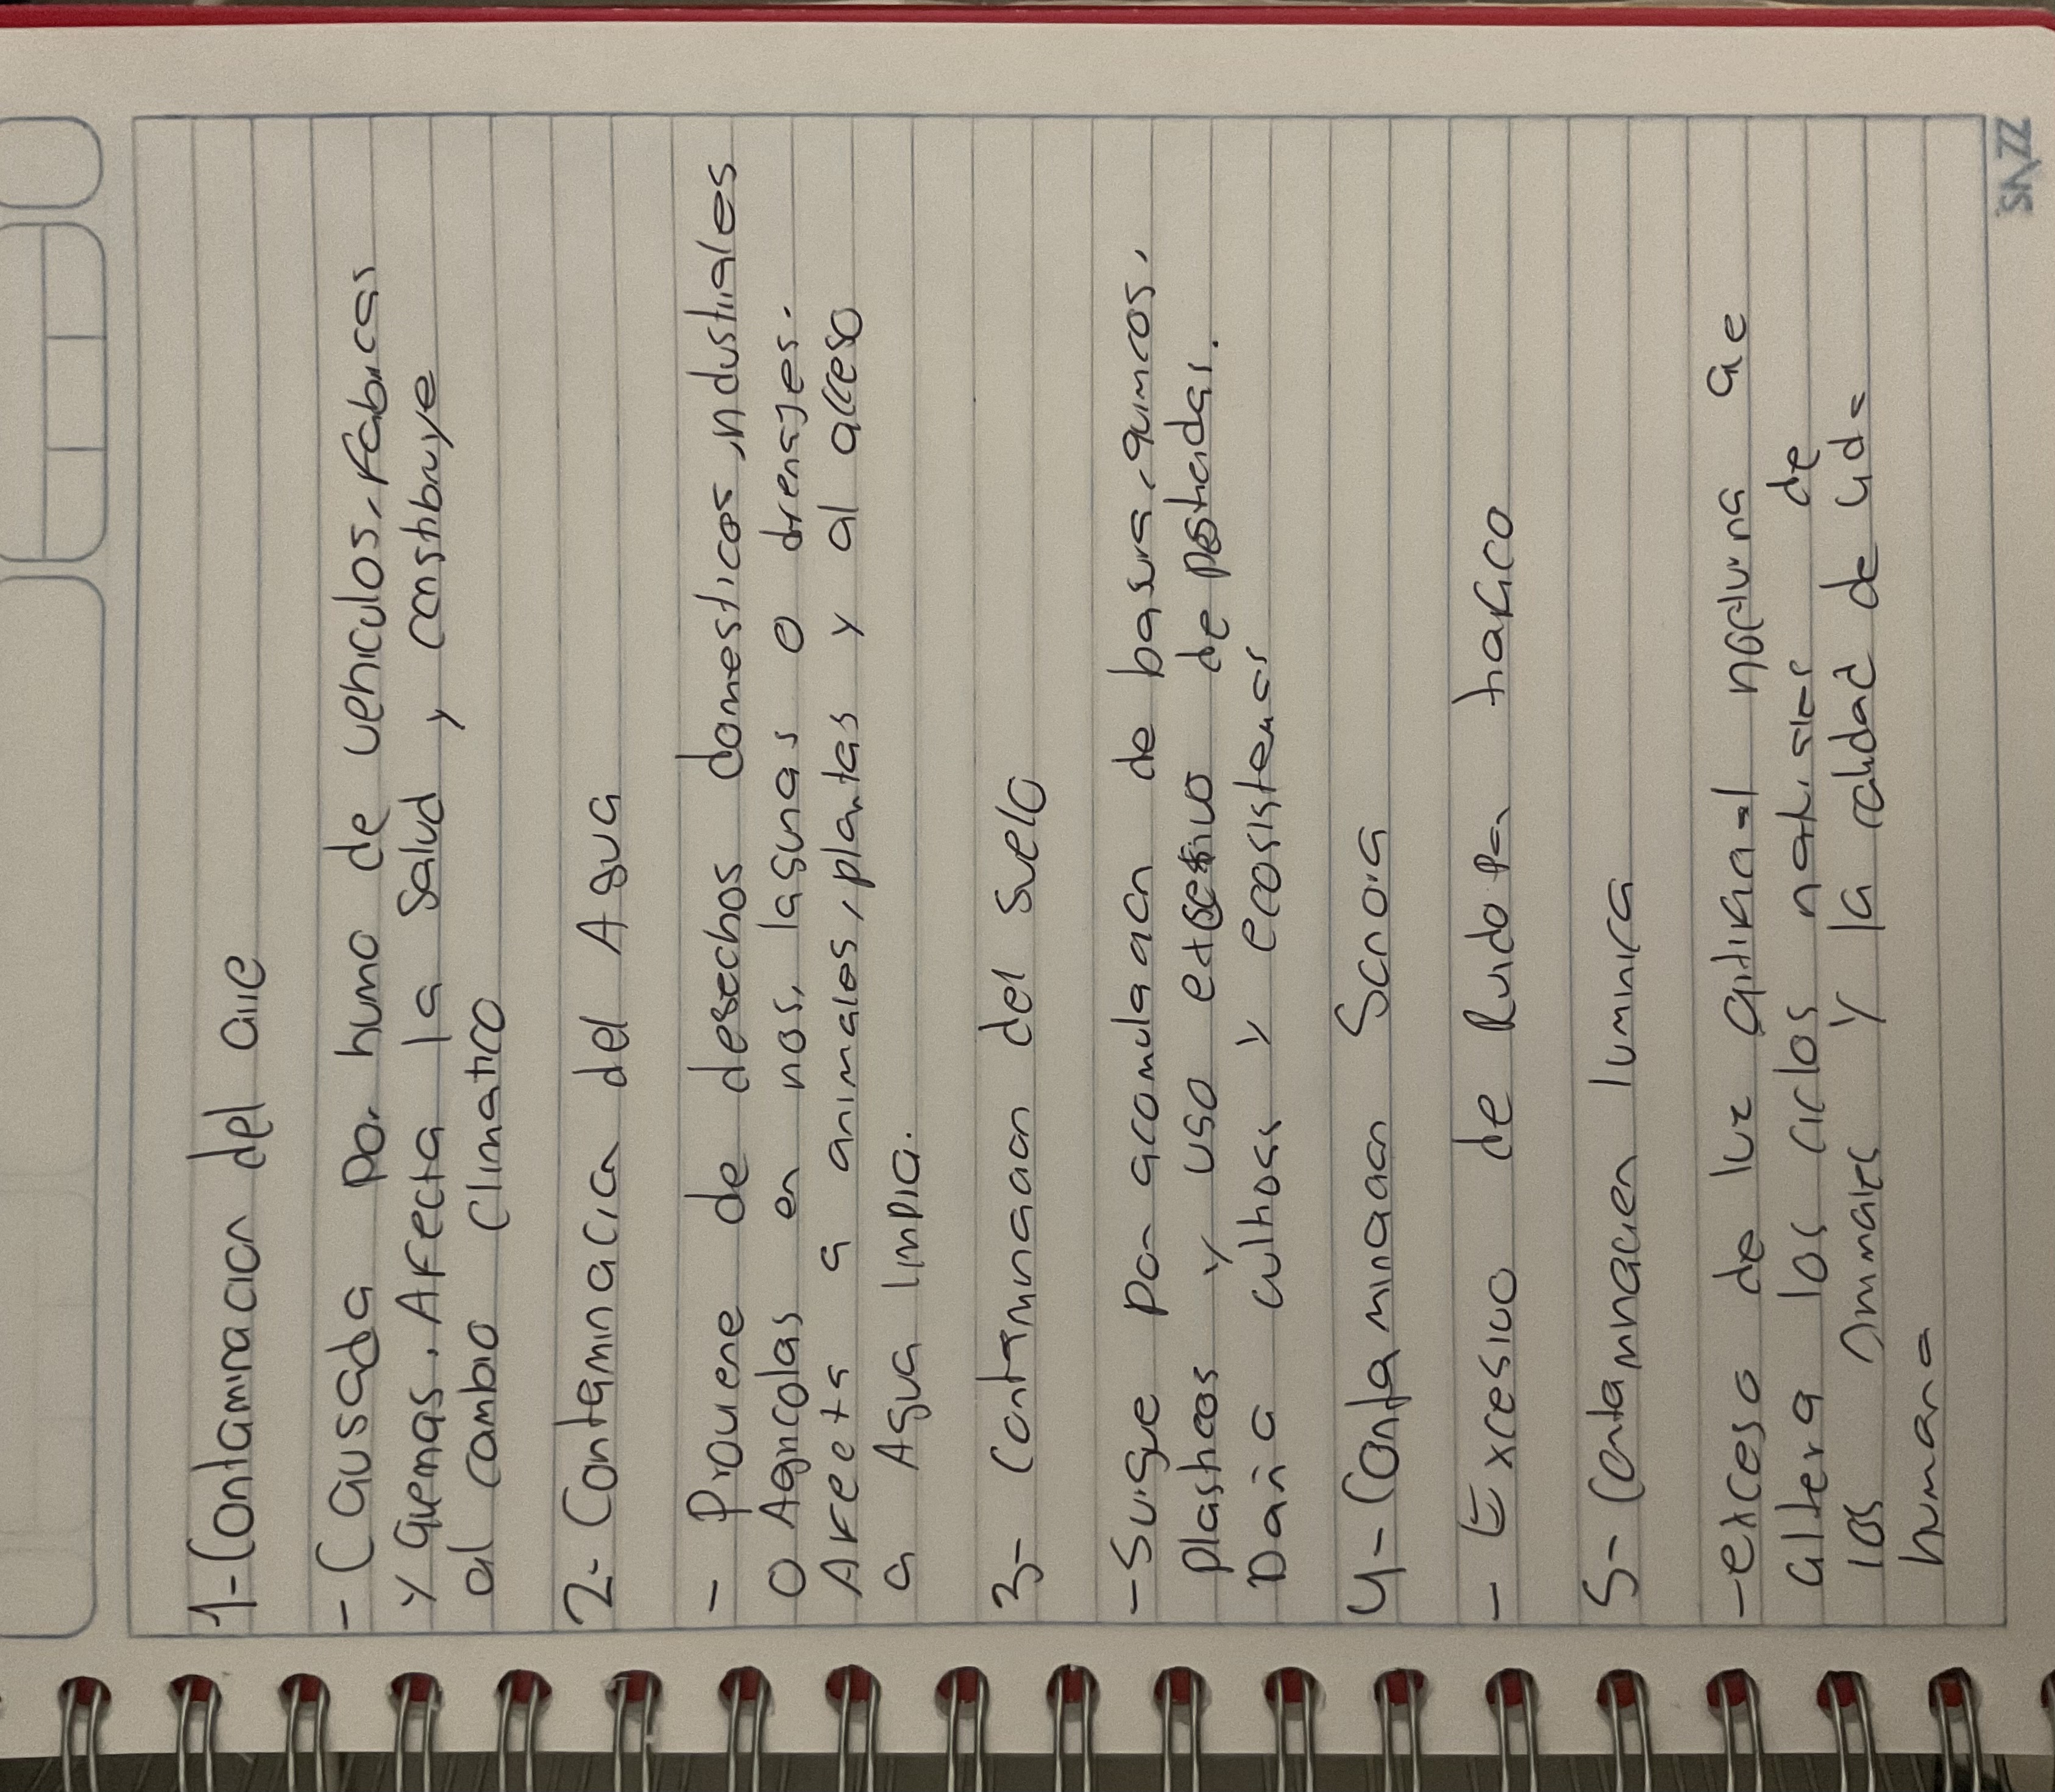 1-Contaminacion del aire
- Causada por humo de vehiculos, Fabricas
y quemas. Afecta la salud y constibuye
al cambio climatico
2- Contaminacia del Agua
- Proviene de desechos domesticos, industriales
o Agricolas en rios, lagunas o drenajes.
Afecta a animales, plantas y al acceso
a Agua limpia.
3- Contaminacion del suelo
- Surge por acomulacion de basura, quimicos,
plasticos y uso de pesticidas.
Daña cultivos y ecosistemas
4- Contaminacion Sonora
- Excesivo de Ruido trafico
5- Contaminacion luminica
- exceso de luz artificial nocturna que
altera los ciclos naturales de
los animales y la calidad de vida
humana
SNZZ